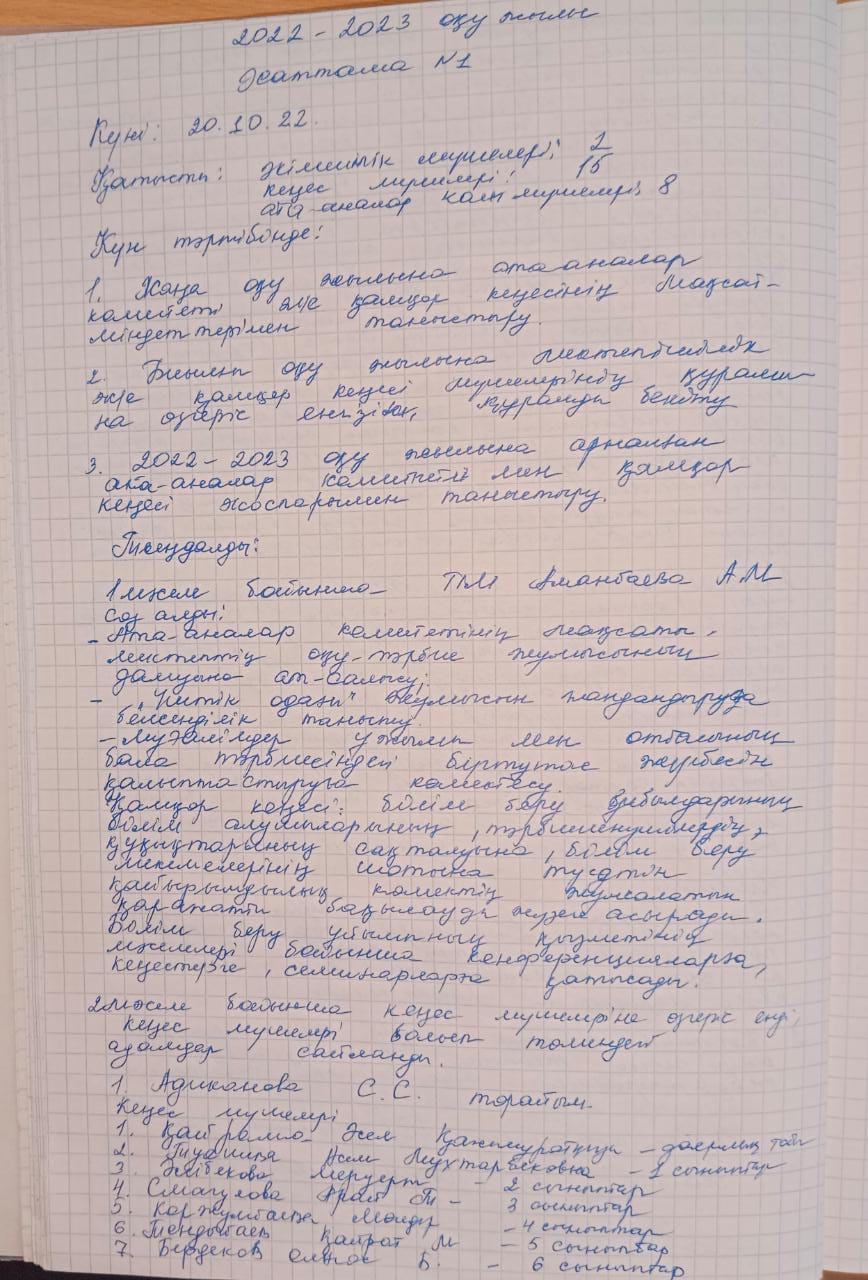 2022 - 2023 оқу жылы
Хаттама №1
Күні: 20.10.22.
Қатысты: әкімшілік мүшелері: 2
кеңес мүшелері: 15
ата-аналар ком мүшелері, 8
Күн тәртібінде:
1. Жаңа оқу жылына ата аналар
комитеті және қамқор кеңесінің мақсат-
міндеттерімен таныстыру.
2. Биылғы оқу жылына
және қамқор кеңесі мүшелерінің құрамы-
на өзгеріс енгізіліп, құрамды бекіту
3. 2022 - 2023 оқу жылына арналған
ата-аналар комитеті мен қамқор
кеңесі жоспарымен таныстыру.
Тыңдалды:
1 мәселе бойынша - Аманбаева А.М
сөз алды:
- Ата-аналар комитетінің мақсаты.
мектептің оқу-тәрбие жұмысының
дамуына ат-салысу;
- жұмысын жандандыруда
белсенділік танысты.
- Мұғалімдер ұжымы мен отбасының
бала тәрбиесіндегі біртұтас жүйесін
қалыптастыруға көмектесу.
Қамқор кеңесі: білім беру ұйымдарының
білім алушыларының, тәрбиеленушілердің,
құқықтарының сақталуына, білім беру
мекемелерінің шотына түсетін
қайырымдылық көмектің жұмсалатын
қаражатты бақылауды жүзеге асырады.
Білім беру ұйымның қызметінің
мәселелері бойынша конференцияларға,
кеңестерге, семинарларға қатысады.
2 мәселе бойынша кеңес мүшелеріне өзгеріс енді,
кеңес мүшелері болып төмендегі
адамдар сайланды.
1. Адиканова С.С. төрайым.
Кеңес мүшелері
1. Әсел - даярлық
2. Әсем Мухтарбековна - 1 сыныптар
3. Меруерт - 2 сыныптар
4. Смагулова - 3 сыныптар
5. Мөлдір - 4 сыныптар
6. Қайрат М - 5 сыныптар
7. Бердеков Б. - 6 сыныптар